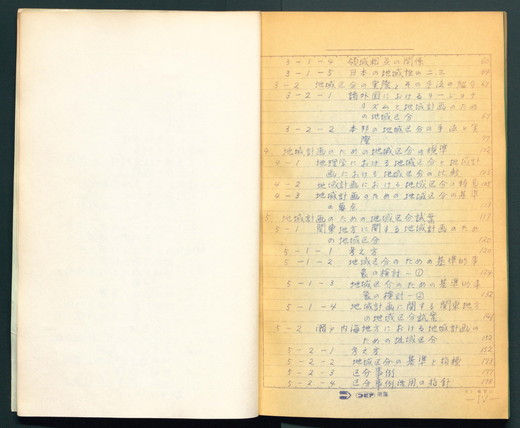 3-1-4 領域相互の関係 60
3-1-5 日本の地域性の二三
3-2 地域区分の実際とその手法の紹介
3-2-1 諸外国におけるリージョナ
リズムと地域計画のため
の地域区分 67
3-2-2 本邦の地域区分の手法と実
際
4 地域計画のための地域区分の規準
4-1 地理学における地域区分と地域計
画における地域区分の比較
4-2 地域計画における地域区分の特質
4-3 地域計画のための地域区分の基準
の要点
5 地域計画のための地域区分試案
5-1 関東地方に関する地域計画のため
の地域区分 120
5-1-1 考え方 120
5-1-2 地域区分のための基準的事
象の検討-①
5-1-3 地域区分のための基準的事
象の検討-②
5-1-4 地域計画に関する関東地方
の地域区分試案
5-2 瀬戸内海地方における地域計画の
ための地域区分 152
5-2-1 考え方 152
5-2-2 地域区分の基準と指標
5-2-3 区分事例
5-2-4 区分事例適用の指針
コピア
-IV-